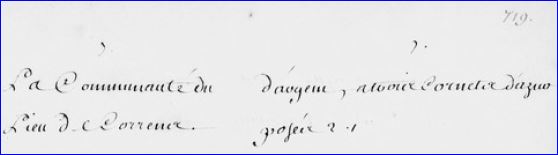 719.
La Communauté du
Lieu De Correns.
d'argent, a trois Cornetz d'azur
posées 2. 1